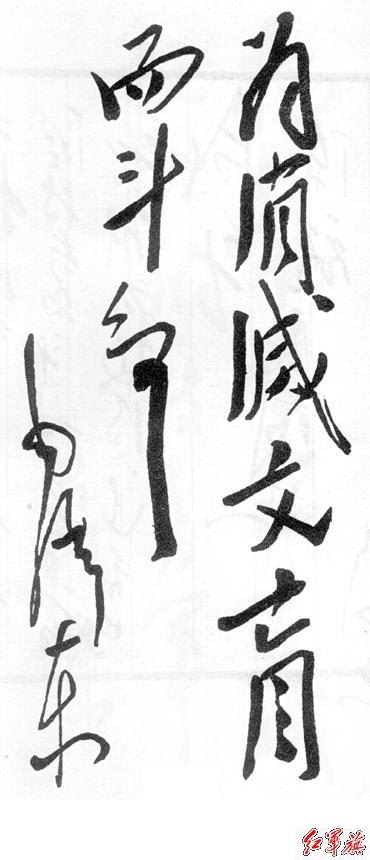 为消灭文盲
而斗争
毛泽东
红军旗